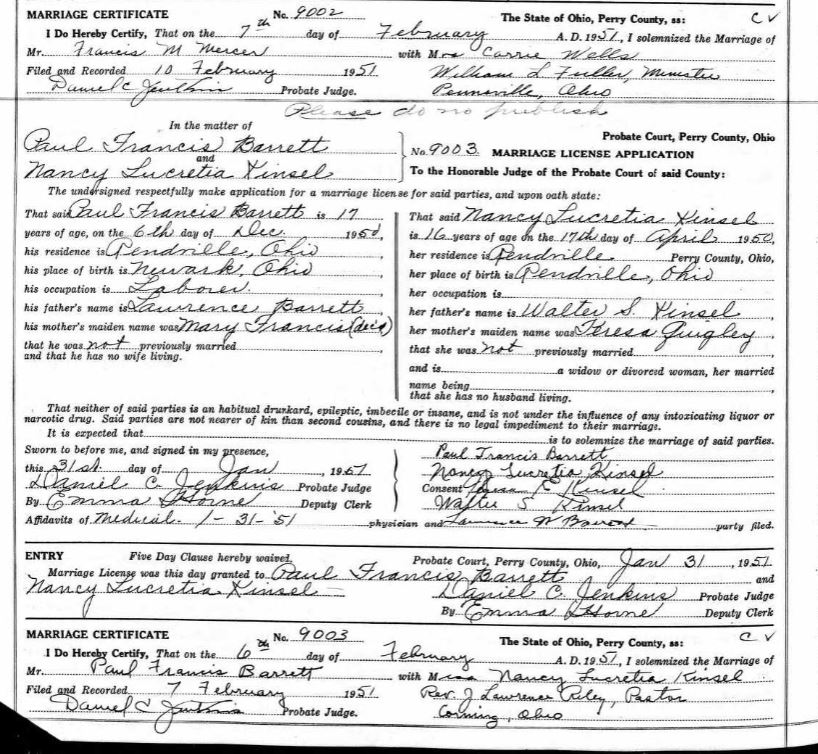 MARRIAGE CERTIFICATE No. 9002 The State of Ohio, Perry County, ss: C V
I Do Hereby Certify, That on the 7th day of February A. D. 1951, I solemnized the Marriage of
Mr. Francis M Mercer with Miss Carrie Wells
Filed and Recorded 10 February 1951 William L Fuller, Minister
Daniel C Jenkins Probate Judge. Ohio
Please do no publish
In the matter of
Probate Court, Perry County, Ohio
Paul Francis Barrett
and
No. 9003 MARRIAGE LICENSE APPLICATION
Nancy Lucretia Kinsel
To the Honorable Judge of the Probate Court of said County:
The undersigned respectfully make application for a marriage license for said parties, and upon oath state:
That said Paul Francis Barrett is 17
years of age, on the 6th day of Dec. 1950,
his residence is Rendville, Ohio
his place of birth is Newark, Ohio
his occupation is Laborer
his father's name is Lawrence Barrett
his mother's maiden name was Mary Francis (dec'd)
that he was not previously married
and that he has no wife living.
That said Nancy Lucretia Kinsel
is 16 years of age on the 17th day of April 1950,
her residence is Rendville Perry County, Ohio,
her place of birth is Rendville, Ohio
her occupation is
her father's name is Walter S. Kinsel
her mother's maiden name was Teresa Quigley
that she was not previously married
and is a widow or divorced woman, her married
name being
that she has no husband living.
That neither of said parties is an habitual drunkard, epileptic, imbecile or insane, and is not under the influence of any intoxicating liquor or
narcotic drug. Said parties are not nearer of kin than second cousins, and there is no legal impediment to their marriage.
It is expected that is to solemnize the marriage of said parties.
Sworn to before me, and signed in my presence,
this 31st day of Jan, 1951
Daniel C. Jenkins Probate Judge
By Emma Horne Deputy Clerk
Paul Francis Barrett
Nancy Lucretia Kinsel
Consent Kinsel
Walter S. Kinsel
Affidavits of Medical 1-31-'51 physician and Lawrence W Barrett party filed.
ENTRY Five Day Clause hereby waived. Probate Court, Perry County, Ohio, Jan 31, 1951
Marriage License was this day granted to Paul Francis Barrett and
Nancy Lucretia Kinsel Daniel C. Jenkins Probate Judge
By Emma Horne Deputy Clerk
MARRIAGE CERTIFICATE No. 9003 The State of Ohio, Perry County, ss: C V
I Do Hereby Certify, That on the 6th day of February A. D. 1951, I solemnized the Marriage of
Mr. Paul Francis Barrett with Miss Nancy Lucretia Kinsel
Filed and Recorded 7 February 1951 Rev. J Lawrence Riley, Pastor
Daniel C Jenkins Probate Judge. Corning, Ohio